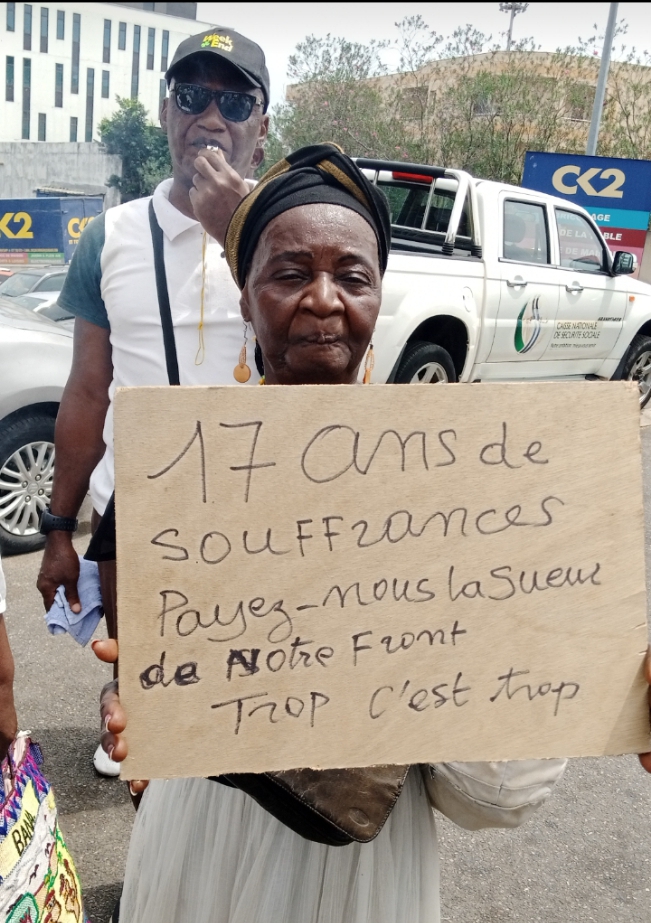 Week
End
CK2
K2
CK2
CAISSE NATIONALE
DE SECURITE SOCIALE
17 ans de
souffrances
Payez-nous la sueur
de Notre Front
Trop c'est trop
BAN